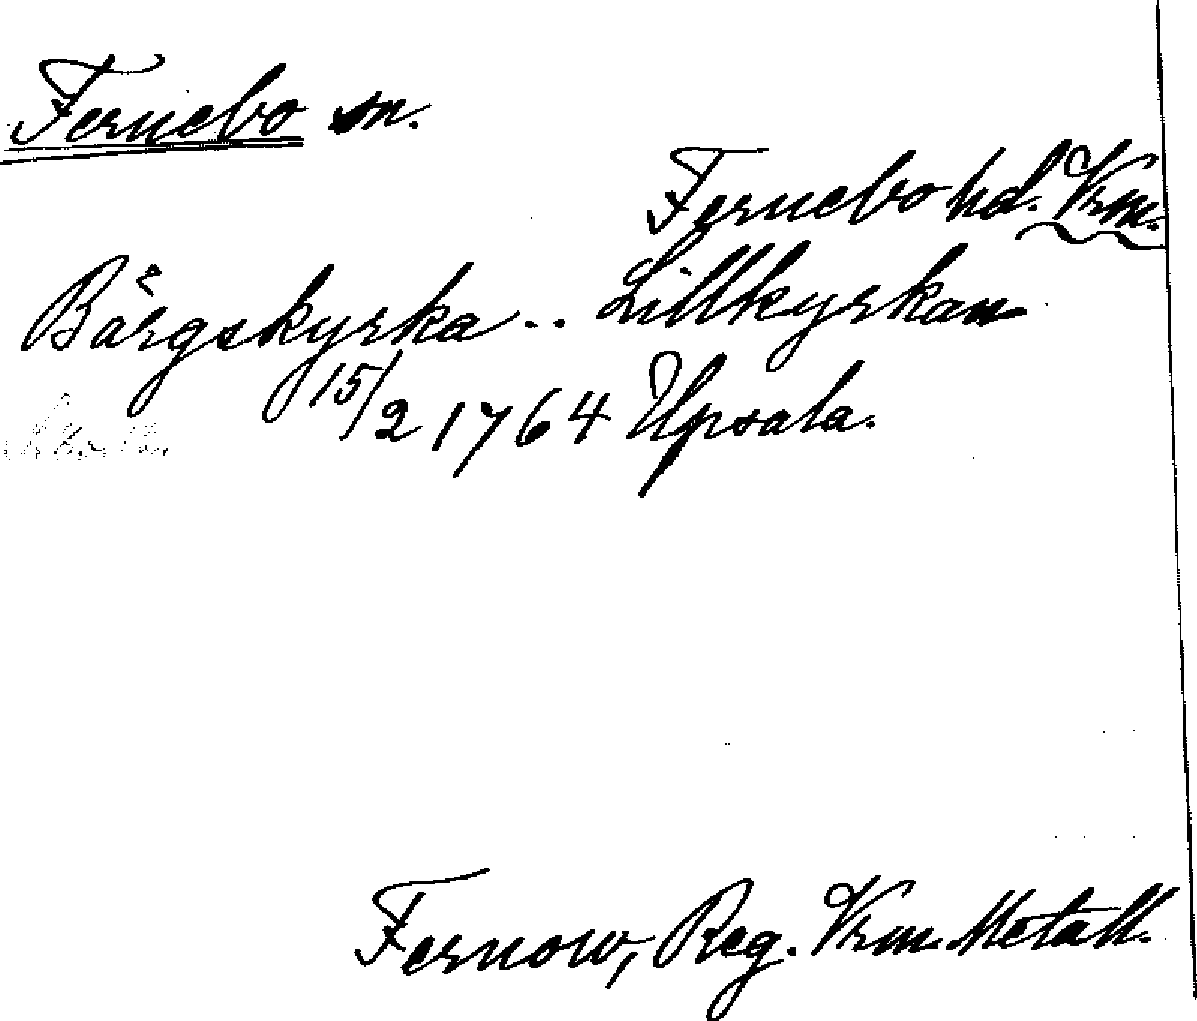 Fernebo sn.
Fernebo hd. Vrm.
Bårgskyrka .. Lillkyrkan
15/2 1764 Upsala.
Fernow, Reg. Vrm. Metall.